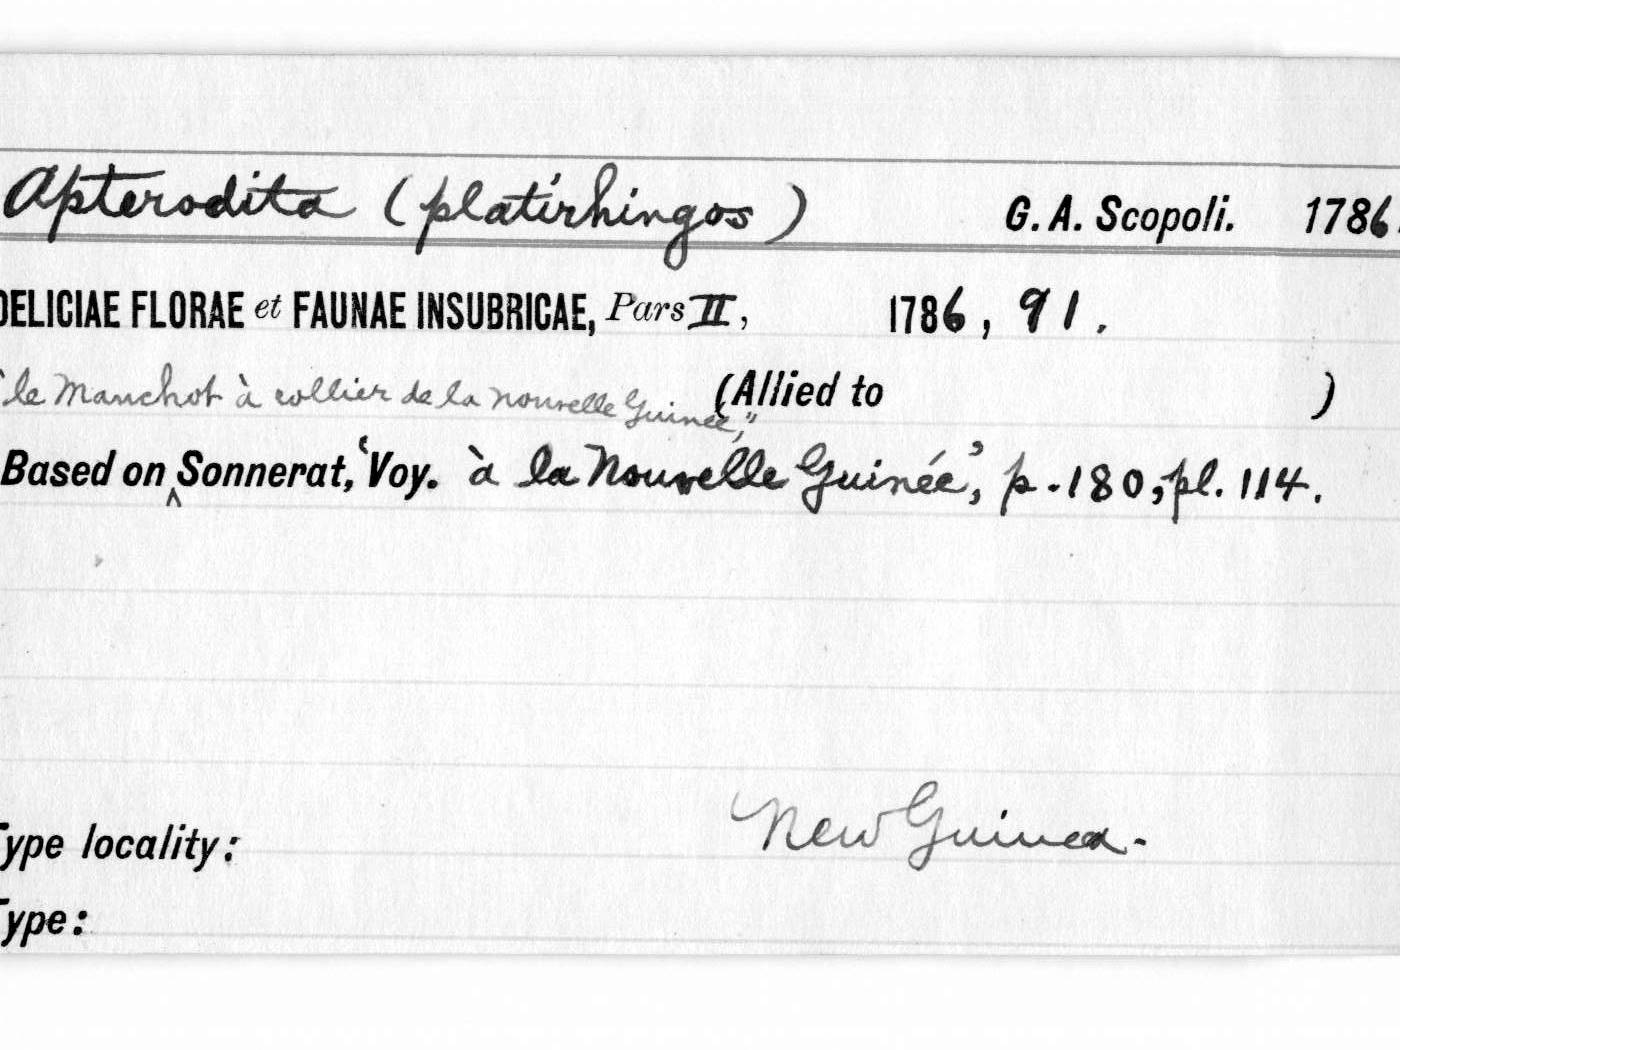 Apterodita (platirhingos) G. A. Scopoli. 1786.
DELICIAE FLORAE et FAUNAE INSUBRICAE, Pars II, 1786, 91.
"le Manchot à collier de la Nouvelle Guinée," (Allied to )
Based on ^ Sonnerat, 'Voy. à la Nouvelle Guinée', p. 180, pl. 114.
New Guinea.
Type locality:
Type: